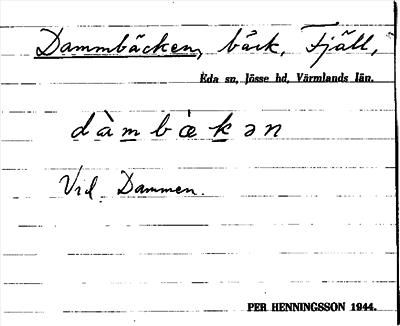 Dammbäcken, bäck, Fjäll,
Eda sn, Jösse hd, Värmlands län.
dàmbæ̀kən
Vid Dammen.
PER HENNINGSSON 1944.